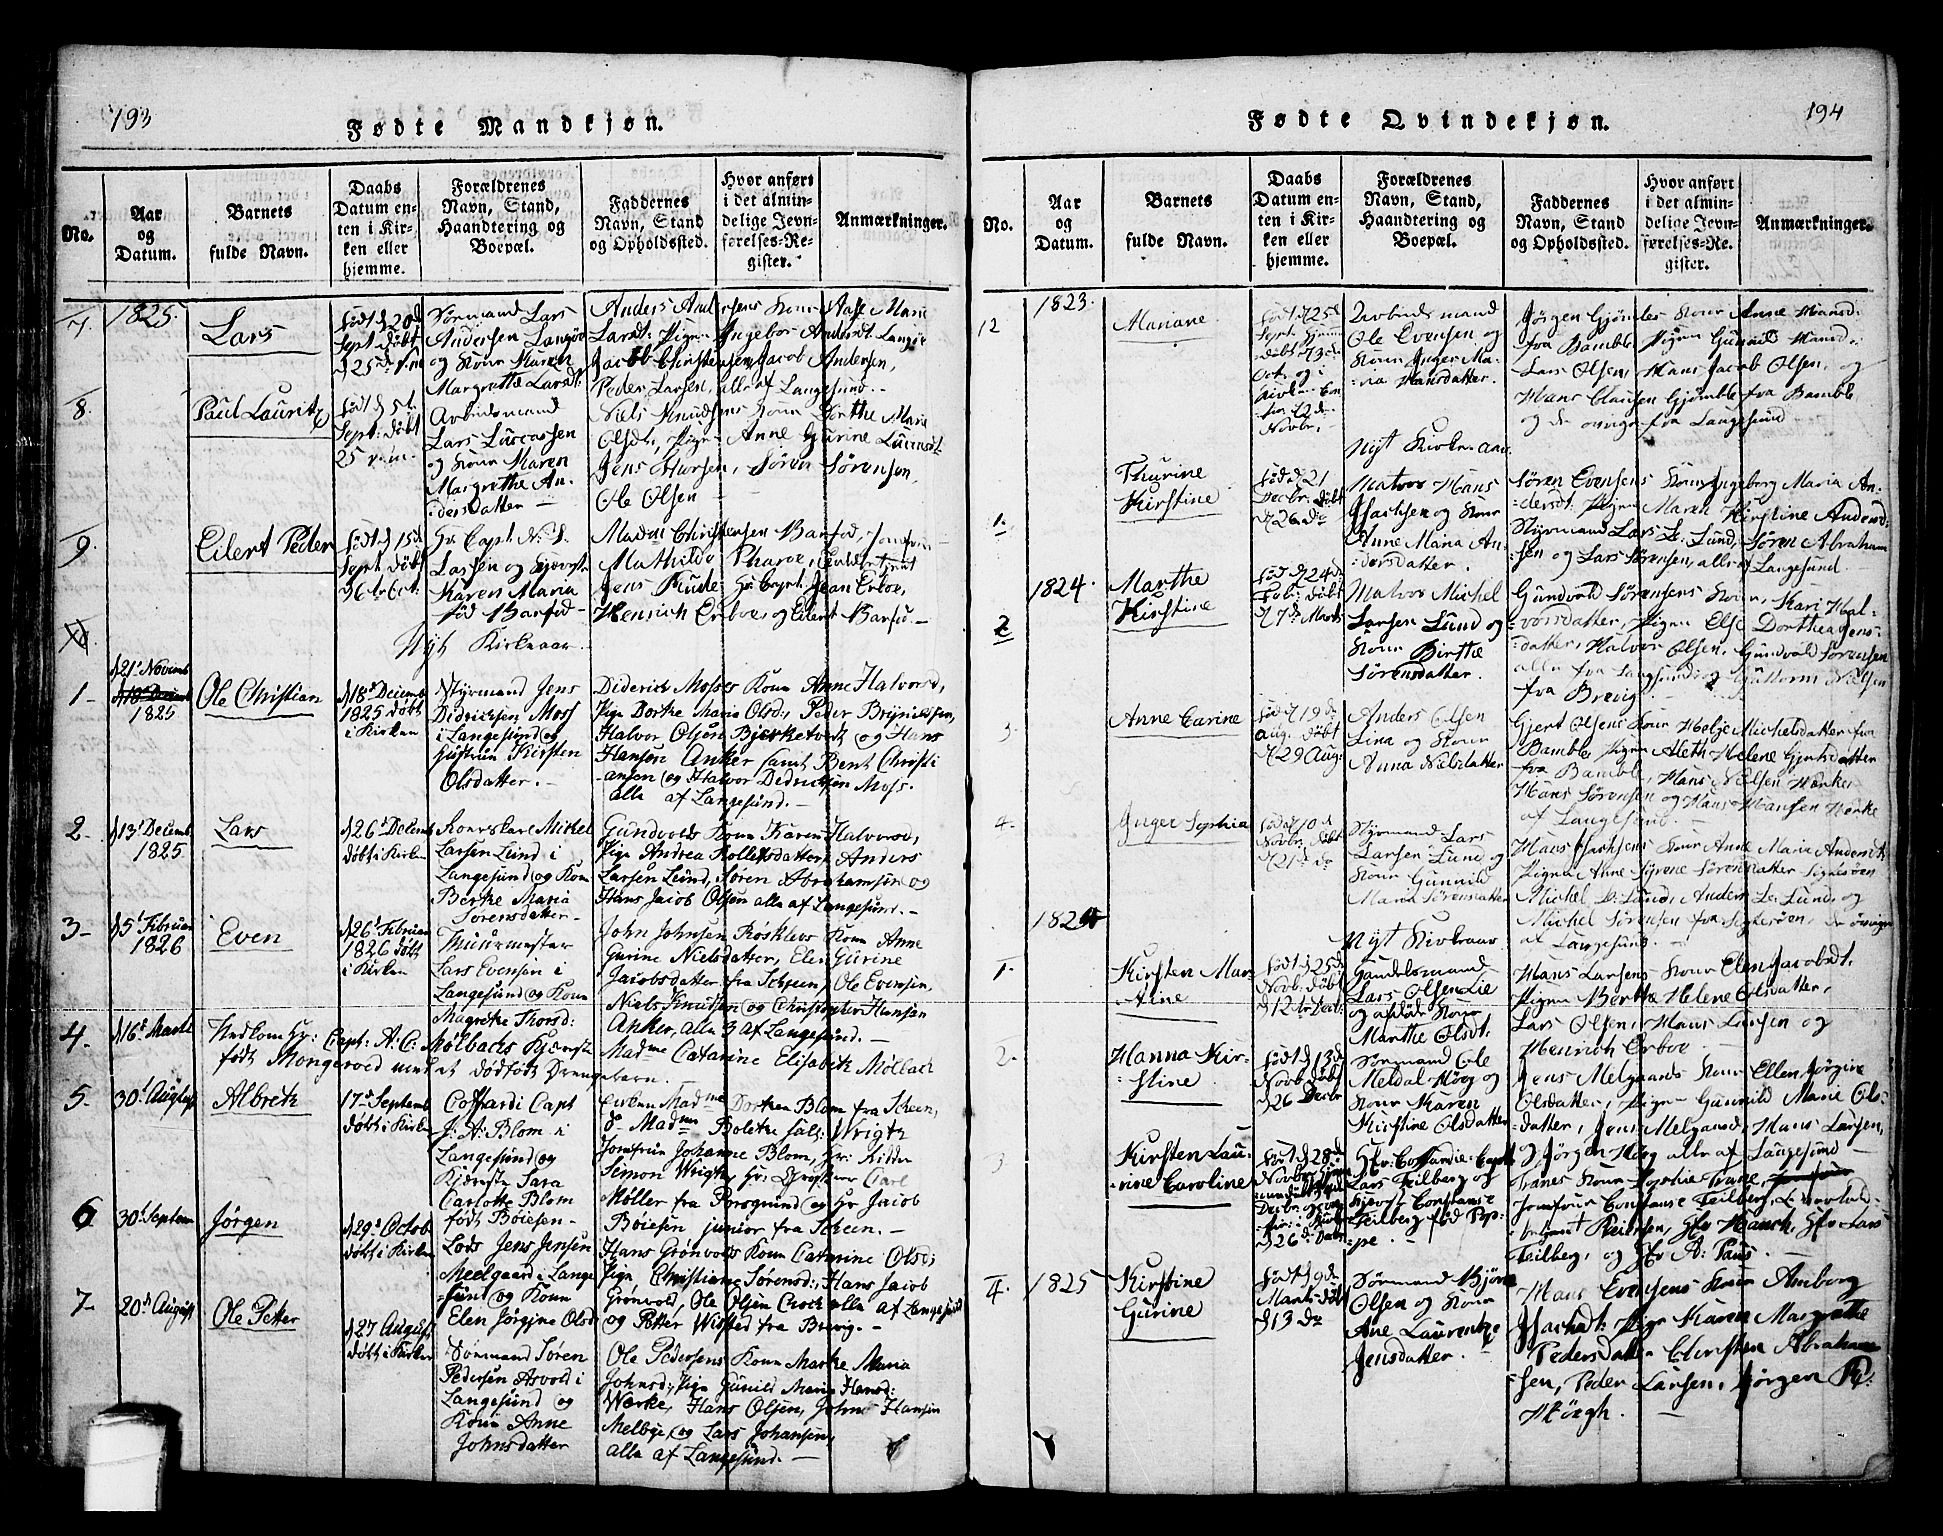 193
Fødte Mandkjøn.
No.
Aar
og
Datum.
Barnets
fulde Navn.
Daabs
Datum en-
ten i Kir-
ken eller
hjemme.
Forældrenes
Navn, Stand,
Haandtering og
Boepæl.
Faddernes
Navn, Stand
og Opholdssted.
Hvor anført
i det almin-
delige Jevn-
førelses-Re-
gister.
Anmærkninger.
7.
1825.
Lars
født d 20d
Sept døbt
d 25de
Sørmand Lars
Andersen Langøe
og Kone Maren
Margrethe Larsdt.
Anders Andersens Kone Aase Marie
Larsdt: Pigen Ingebor Andersdt Langøe
Jacob Christensen, Jacob Andersen,
Peder Larsen, alle af Langesund.-
8.
Paul Lauritz
født d 5t
Sept: døbt
25
Arbeidsmand
Lars Luccassen
og Kone Karen
Margrethe An-
dersdatter
Niels Knudsens Kone Berthe Marie
Olsdt, Pigen Anne Gurine
Jens Thorsen, Søren Sørensen,
Ole Olsen
9.
Eilert Peder
født d 15d
Sept døbt
d 6te Oct.
Hr. Capt. N. S.
Larsen og Kjæreste
Karen Maria
fød Barfod
Madm Christensen Barfod, Jomfrue
Mathilde Pharoe,
Jens Rude, Hr Capt. Jean Erboe,
Henrich Erboe, og Eilert Barfod.-
Nyt Kirkeaar
1-
d 21 Novemb
d 18 Decemb
1825
Ole Christian
d 18d Decemb
1825 døbt
i Kirken
Styrmand Jens
Didricksen Moss
i Langesund og
Hustrue Kirsten
Olsdatter.-
Diderick Mosses Kone Anne Halvorsd,
Pige Dorthe Maria Olsd, Peder Brynildsen,
Halvor Olsen Bjerketvedt og Hans
Hansen Anker samt Bent Christi
ansen og Halvor Didricksen Moss.
alle af Langesund.-
2-
d 13d Decemb
1825
Lars
d 26d Decemb
døbt i Kirken
Mikel
Larsen Lund i
Langesund og Kone
Berthe Maria
Sørensdatter-
Gundvolds Kone Karen Halvorsd,
Pige Andrea Rollefsdatter, Anders
Larsen Lund, Søren Abrahamsen og
Hans Jacob Olsen alle af Langesund.-
3-
d 5t Februar
1826
Even
d 26d Februar
1826 døbt
i Kirken
Muurmester
Lars Evensen i
Langesund og Kone
Magrethe Thorsd:
John Johnsen Røsklevs Kone Anne
Gurine Nielsdatter, Elen Gurine
Jacobsdatter fra Scheen, Ole Evensen,
Niels Knutsen og Christopher Hansen
Anker, alle 3 af Langesund.-
4-
d 16d Martz
Nedkom Hr: Capt: A: C: Mølbachs Kjæreste
født Mongeraad med et dødfødt Drengebarn.-
Madme Catarine Elisabeth Mølbach
5-
30t August
Albreth
17d Septemb
døbt i Kirken
Coffardi Capt
J: A: Blom i
Langesund og
Kjæreste Sara
Carlotte Blom
født Bøiesen-
Enken Madme Dorthea Blom fra Scheen,
& Madme Bolette sal: Wrigtz
Jomfrue Johanne Blom, Hr: Ridder
Simon Wrigtz, Hr: Carl
Møller fra Porsgrund og Hr Jacob
Bøiesen junior fra Scheen.-
6
30t Septem
Jørgen
d 29d Octob
døbt i Kirken
Lods Jens Jensen
Meelgaard i Lange
sund og Kone
Elen Jørgine Olsd
Hans Grønvolds Kone Catarine Olsd:
Pige Christiane Sørensd: Hans Jacob
Grønvold, Ole Olsen Crock alle af Langesund
og Petter Wiisted fra Brevig.-
7-
20d August
Ole Petter
d 27 August
døbt i Kirken
Sørmand Søren
Pedersen Asvold i
Langesund og
Kone Anne
Johnsdatter
Ole Pedersens Kone Marthe Maria
Johnsd: Pige Gunild Maria Hansd:
Werke, Hans Olsen, John Hansen
Melbye, og Lars Johansen,
alle af Langesund.-
194
Fødte Qvindekjøn.
No.
Aar
og
Datum.
Barnets
fulde Navn.
Daabs
Datum en-
ten i Kir-
ken eller
hjemme.
Forældrenes
Navn, Stand,
Haandtering og
Boepæl.
Faddernes
Navn, Stand
og Opholdssted.
Hvor anført
i det almin-
delige Jevn-
førelses-Re-
gister.
Anmærkninger.
12
1823.
Mariane
født d 25d
Sept.
døbt
Oct. og i
Kirken
12d
Novbr.
Arbeidsmand
Ole Evensen og
Kone Inger Ma-
ria Hansdatter.
Jørgen Gjømles Kone Anne Hansd:
fra Bamble, Pigen Gunild Hansd:
Lars Olsen, Hans Jacob Olsen, og
Hans Clausen Gjømle fra Bamble
og de øvrige fra Langesund
Nyt Kirke aar
1.
Thurine
Kirstine
født d 21
Decbr. døbt
d 26 do
Matros Hans
Isachsen og Kone
Anne Maria An-
dersdatter.
Søren Evensens Kone Ingeborg Maria An-
dersdt. Pigen Maren Kirstine Andersd:
Styrmand Lars L: Lund, Søren Abraham-
sen og Lars Sørensen, alle af Langesund.
2
1824.
Marthe
Kirstine
født d 24d
Febr: døbt
d 7d Marts
Matros Michel
Larsen Lund og
Kone Birthe
Sørensdatter.
Gundvald Sørensens Kone, Kari Hal-
vorsdatter, Pigen Else Dorthea Jens-
datter, Halvor Olsen, Gundvald Sørensen
alle fra Langesund og Guttorm Nielsen
fra Brevig.
3.
Anne Carine
født d 19d
Aug. døbt
d 29 Aug:
Anders Olsen
Lina og Kone
Anna Nielsdatter
Gjert Olsens Kone Helge Michelsdatter fra
Bamble, Pigen Aleth Helene Gjertsdatter
fra Bamble, Hans Nielsen Herke
Hans Sørensen og Hans Hansen Herke
af Langesund.-
4.
Inger Sophia
født d 10d
Novbr. døbt
d 21d do
Styrmand Lars
Larsen Lund og
Kone Gunnild
Maria Sørensdatter
Hans Isachsens Kone Anne Maria Andersdt,
Pigen Anne Syrene Sørensdatter
Michel L: Lund, Anders L: Lund og
Michel Sørensen fra de øvrige
af Langesund.-
1824
Nyt Kirkeaar
1.
Kirsten Mar-
tine
født d 25d
Novb. døbt
d 12te Decb.
Handelsmand
Lars Olsen Lie
og afdøde Kone
Marthe Olsdt.
Hans Larsens Kone Elen Jacobsdt.
Pigen Berthe Helene Olsdatter,
Lars Olsen, Hans Larsen og
Henrich Erboe.-
2.
Hanna Kir-
stine
født d 13d
Novb. døbt
d 26 Decbr
Sørmand Ole
Meldal Høeg og
Kone Karen
Kirstine Olsdatter
Jens Melgaards Kone Ellen Jørgine
Olsdatter, Pigen Gunnild Marie Ols-
datter, Jens Melgaard, Hans Larsen,
Jørgen Høeg alle af Langesund
3
Kirsten Lau-
rine Caroline
født d 28d
Novbr
Decbr og
d 26 do
Hr: Coffardie-Capt.
Lars Feilberg og
Kjerest Constance
Feilberg fød Pep-
pe.-
Tranes Kone Sophie Trane,
Jomfrue Constanse Feilberg,
Peitersen, Hr Hauch, Hr Lars
Feilberg, og Hr A: Paus.-
4.
1825
Kirstine
Gurine
født d 9de
Marts døbt
d 13 do
Sørmand Bjørn
Olsen og Kone
Ane Laurentze
Jensdatter.
Hans Evensens Kone Amborg
Isachsdt: Pige Karen Margrethe
Pedersdatter Christen Abraham-
sen, Peder Larsen, Jørgen P:
Høegh.-